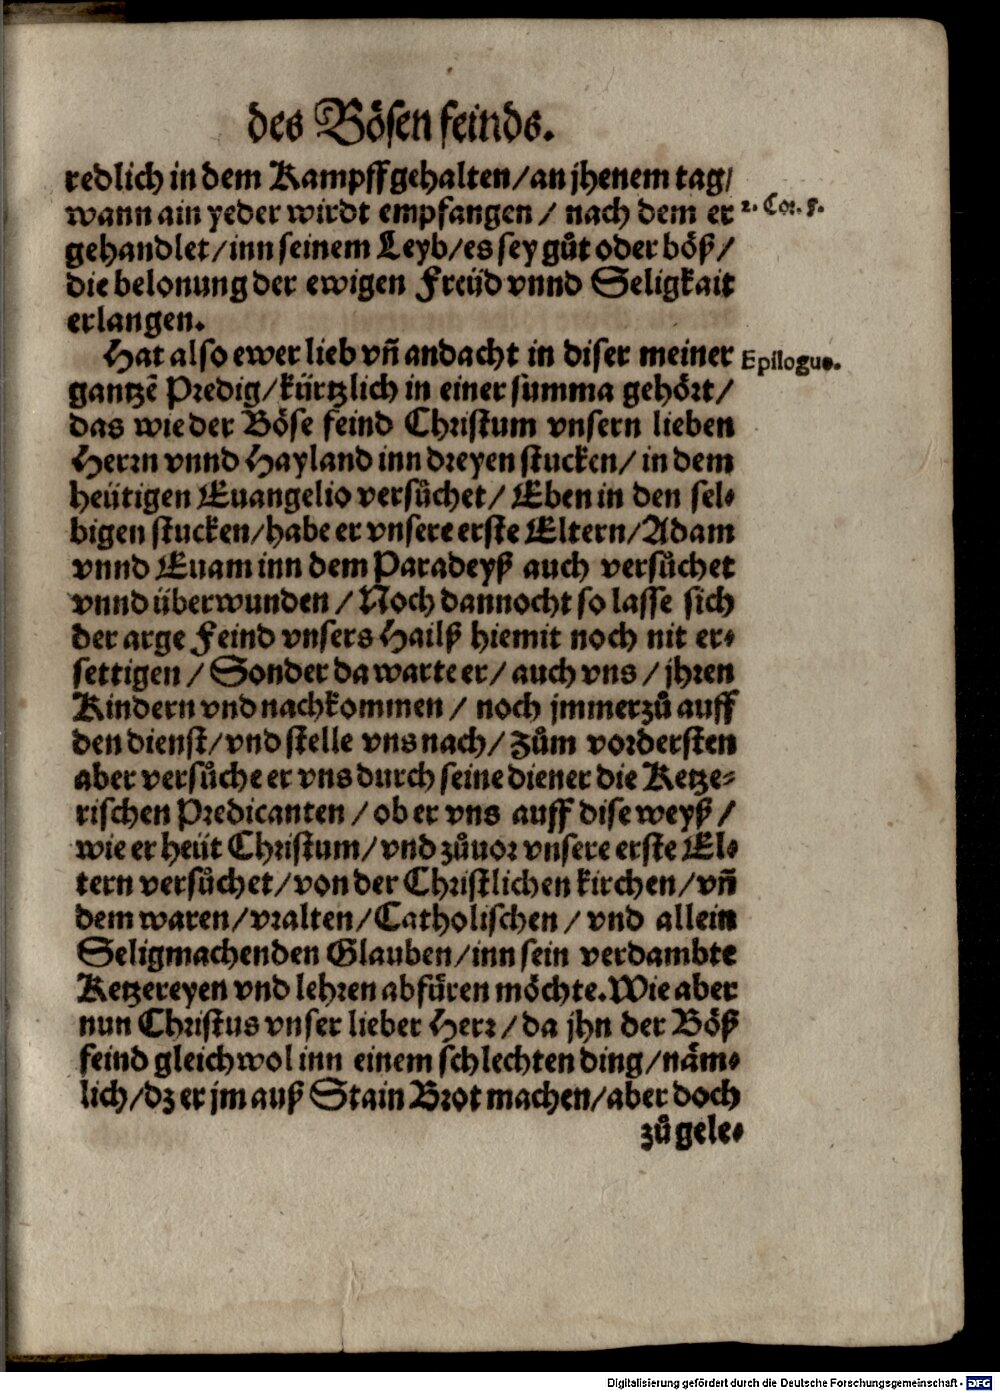 des Bösen feinds.
redlich in dem Kampff gehalten / an jhenem tag /
wann ain yeder wirdt empfangen / nach dem er
2. Cor. 5.
gehandlet / inn seinem Leyb / es sey gůt oder böß /
die belonung der ewigen Freüd vnnd Seligkait
erlangen.
Hat also ewer lieb vñ andacht in diser meiner
Epilogus.
gantzẽ Predig / kürtzlich in einer summa gehört /
das wie der Böse feind Christum vnsern lieben
Herrn vnnd Hayland inn dreyen stucken / in dem
heütigen Euangelio versůchet / Eben in den sel-
bigen stucken / habe er vnsere erste Eltern / Adam
vnnd Euam inn dem Paradeyß auch versůchet
vnnd überwunden / Noch dannocht so lasse sich
der arge Feind vnsers Hailß hiemit noch nit er-
settigen / Sonder da warte er / auch vns / jhren
Kindern vnd nachkommen / noch jmmerzů auff
den dienst / vnd stelle vns nach / Zům vordersten
aber versůche er vns durch seine diener die Ketze-
rischen Predicanten / ob er vns auff dise weyß /
wie er heüt Christum / vnd zůuor vnsere erste El-
tern versůchet / von der Christlichen kirchen / vñ
dem waren / vralten / Catholischen / vnd allein
Seligmachenden Glauben / inn sein verdambte
Ketzereyen vnd lehren abfüren möchte. Wie aber
nun Christus vnser lieber Herr / da jhn der Böß
feind gleichwol inn einem schlechten ding / näm-
lich / dz er jm auß Stain Brot machen / aber doch
zů gele-
Digitalisierung gefördert durch die Deutsche Forschungsgemeinschaft - DFG